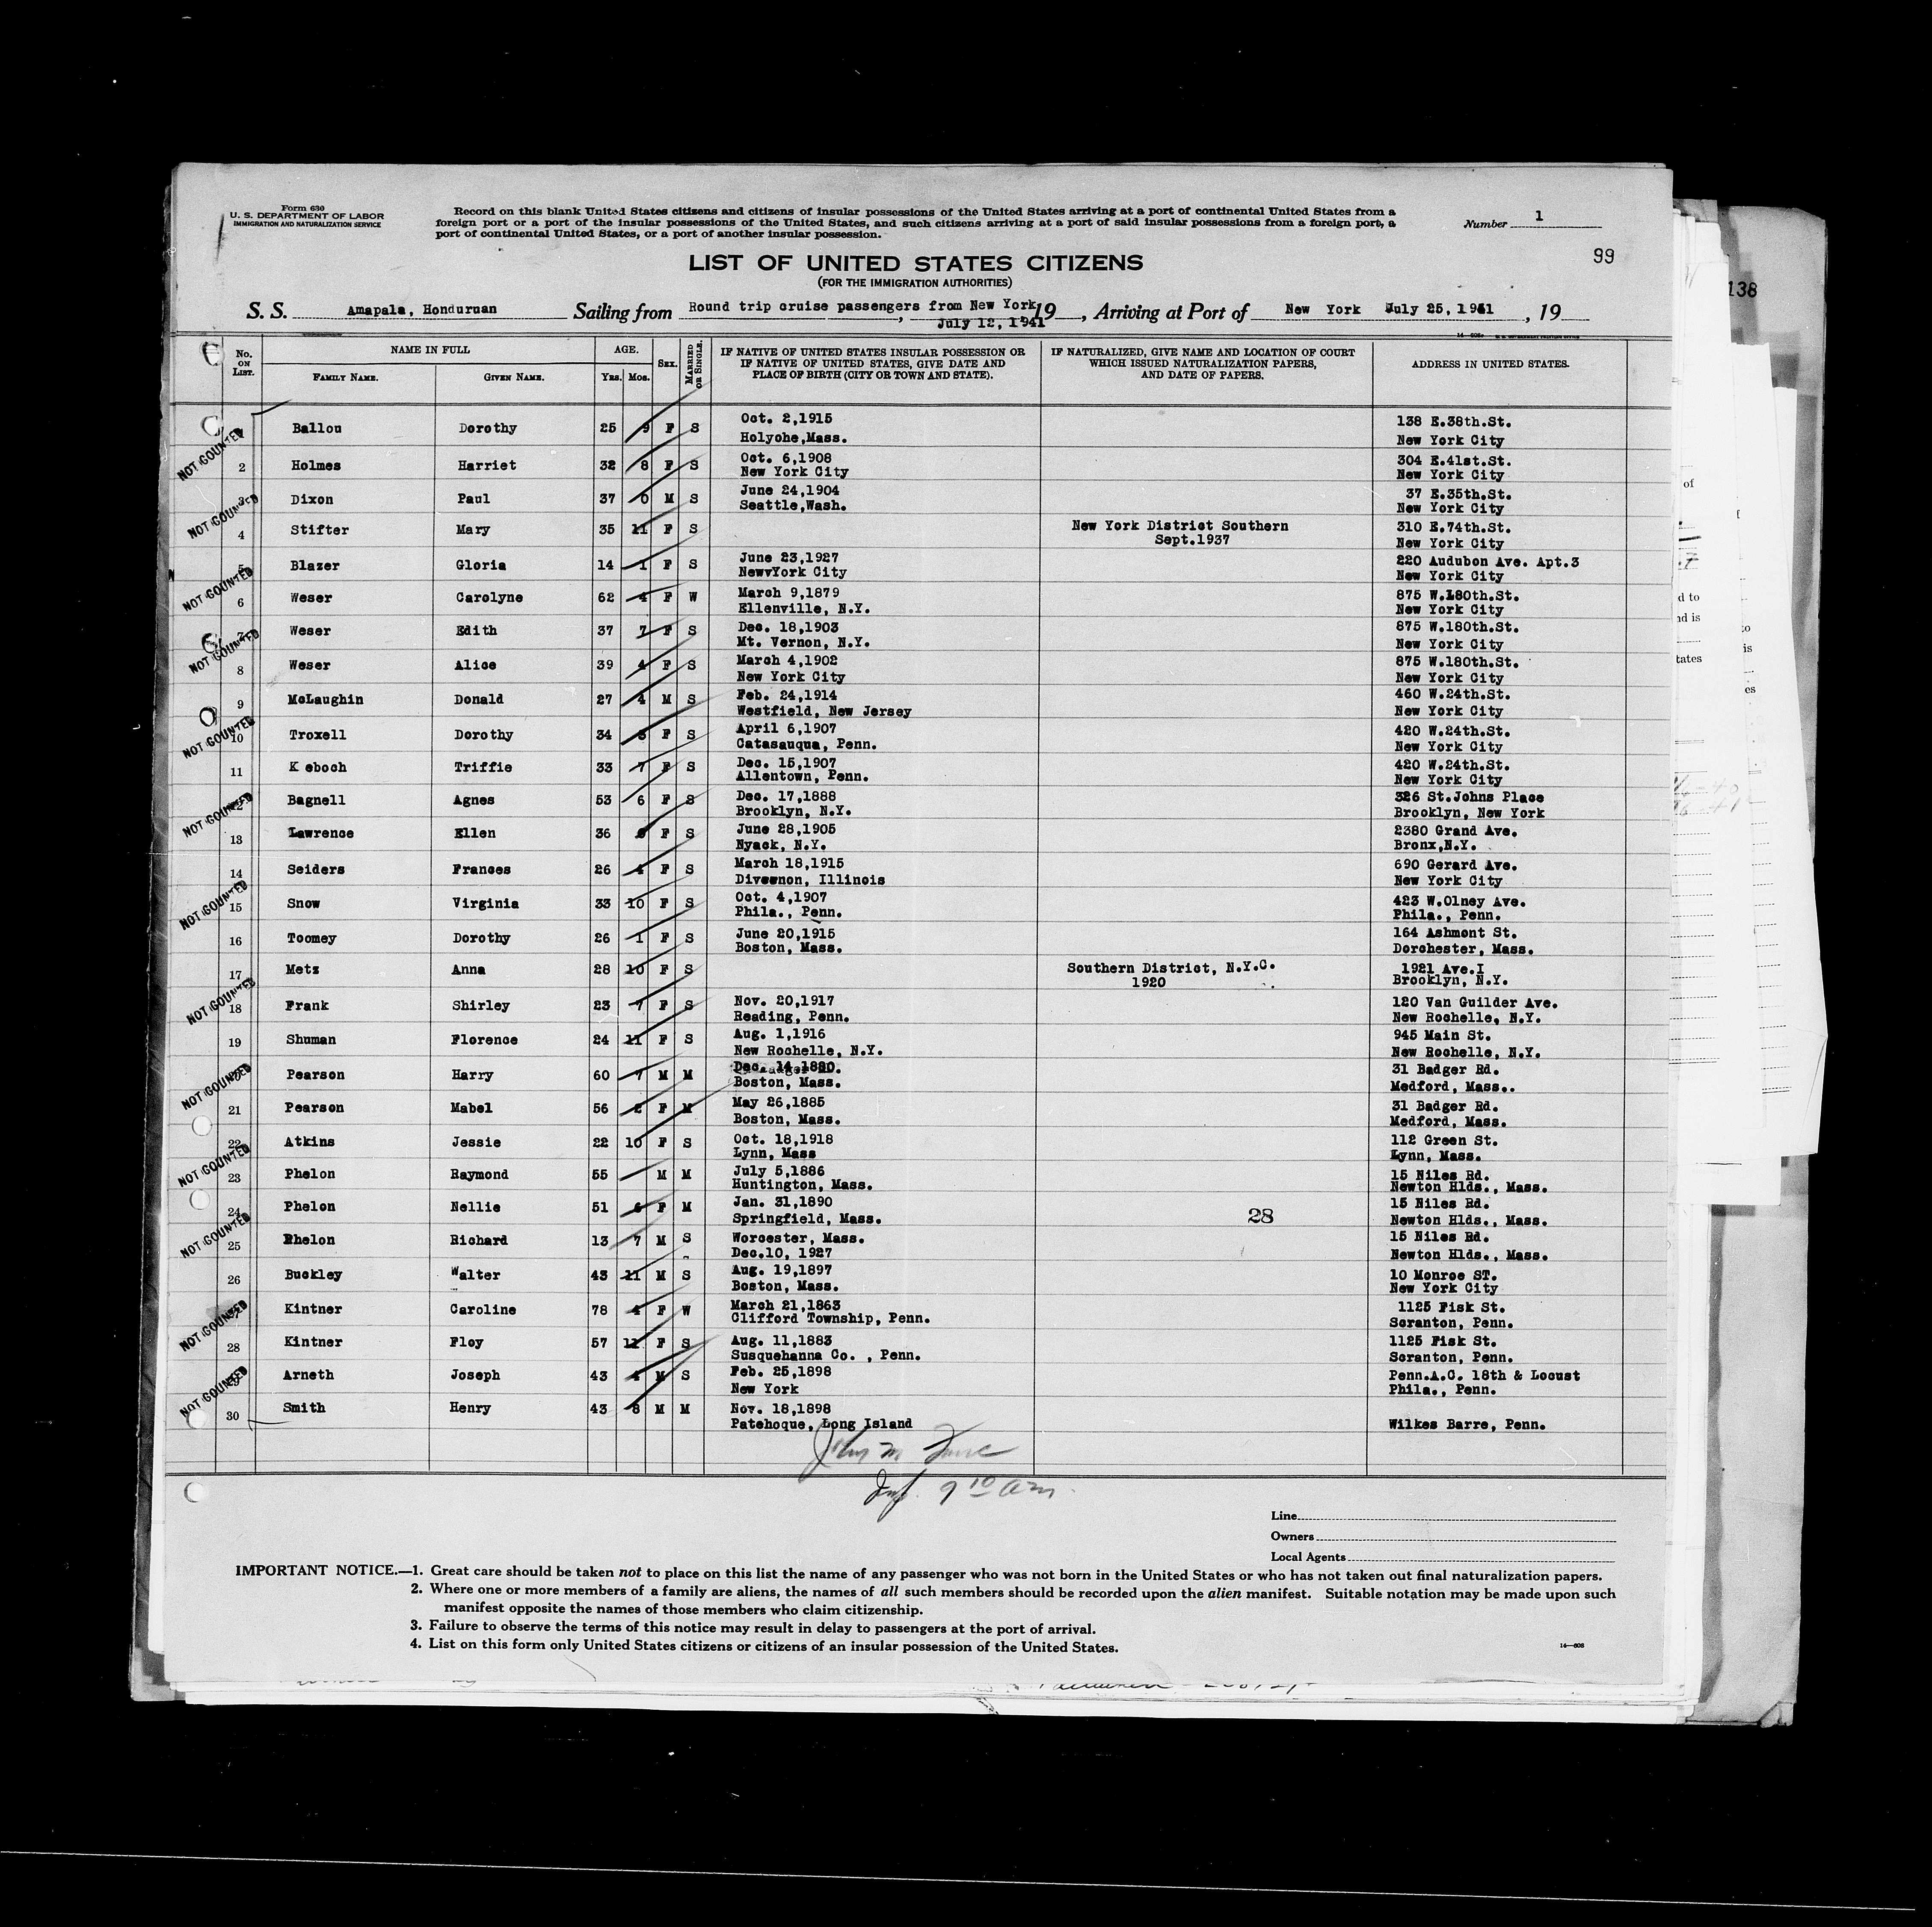 Form 630
U. S. DEPARTMENT OF LABOR
IMMIGRATION AND NATURALIZATION SERVICE
Record on this blank United States citizens and citizens of insular possessions of the United States arriving at a port of continental United States from a
foreign port or a port of the insular possessions of the United States, and such citizens arriving at a port of said insular possessions from a foreign port, a
port of continental United States, or a port of another insular possession.
Number 1
99
138
LIST OF UNITED STATES CITIZENS
(FOR THE IMMIGRATION AUTHORITIES)
S. S. Amapala, Honduruan Sailing from Round trip cruise passengers from New York, 19 , Arriving at Port of New York July 25, 1941 , 19
July 12, 1941
No. ON LIST. NAME IN FULL AGE. SEX. MARRIED OR SINGLE. IF NATIVE OF UNITED STATES INSULAR POSSESSION OR IF NATIVE OF UNITED STATES, GIVE DATE AND PLACE OF BIRTH (CITY OR TOWN AND STATE). IF NATURALIZED, GIVE NAME AND LOCATION OF COURT WHICH ISSUED NATURALIZATION PAPERS, AND DATE OF PAPERS. ADDRESS IN UNITED STATES.
FAMILY NAME. GIVEN NAME. YRS. MOS.
NOT COUNTED
Ballou Dorothy 25 9 F S Oct. 2,1915 Holyohe,Mass. 138 E.38th.St. New York City
2 Holmes Harriet 32 8 F S Oct. 6,1908 New York City 304 E.41st.St. New York City
3 Dixon Paul 37 0 M S June 24,1904 Seattle,Wash. 37 E.35th.St. New York City
4 Stifter Mary 35 11 F S New York District Southern Sept.1937 310 E.74th.St. New York City
5 Blazer Gloria 14 1 F S June 23,1927 NewvYork City 220 Audubon Ave. Apt.3 New York City
6 Weser Carolyne 62 4 F W March 9,1879 Ellenville, N.Y. 875 W.180th.St. New York City
7 Weser Edith 37 7 F S Dec. 18,1903 Mt. Vernon, N.Y. 875 W.180th.St. New York City
8 Weser Alice 39 4 F S March 4,1902 New York City 875 W.180th.St. New York City
9 McLaughin Donald 27 4 M S Feb. 24,1914 Westfield, New Jersey 460 W.24th.St. New York City
10 Troxell Dorothy 34 F S April 6,1907 Catasauqua, Penn. 420 W.24th.St. New York City
11 K eboch Triffie 33 7 F S Dec. 15,1907 Allentown, Penn. 420 W.24th.St. New York City
12 Bagnell Agnes 53 6 F S Dec. 17,1888 Brooklyn, N.Y. 326 St.Johns Place Brooklyn, New York
13 Lawrence Ellen 36 F S June 28,1905 Nyack, N.Y. 2380 Grand Ave. Bronx,N.Y.
14 Seiders Frances 26 4 F S March 18,1915 Divernon, Illinois 690 Gerard Ave. New York City
15 Snow Virginia 33 10 F S Oct. 4,1907 Phila., Penn. 423 W.Olney Ave. Phila., Penn.
16 Toomey Dorothy 26 1 F S June 20,1915 Boston, Mass. 164 Ashmont St. Dorchester, Mass.
17 Metz Anna 28 10 F S Southern District, N.Y.C. 1920 1921 Ave.I Brooklyn, N.Y.
18 Frank Shirley 23 7 F S Nov. 20,1917 Reading, Penn. 120 Van Guilder Ave. New Rochelle, N.Y.
19 Shuman Florence 24 11 F S Aug. 1,1916 New Rochelle, N.Y. 945 Main St. New Rochelle, N.Y.
Pearson Harry 60 7 M M Dec. 14,1880 Boston, Mass. 31 Badger Rd. Medford, Mass..
21 Pearson Mabel 56 2 F M May 26,1885 Boston, Mass. 31 Badger Rd. Medford, Mass.
22 Atkins Jessie 22 10 F S Oct. 18,1918 Lynn, Mass 112 Green St. Lynn, Mass.
23 Phelon Raymond 55 M M July 5,1886 Huntington, Mass. 15 Niles Rd. Newton Hlds., Mass.
24 Phelon Nellie 51 6 F M Jan. 31,1890 Springfield, Mass. 28 15 Niles Rd. Newton Hlds., Mass.
25 Phelon Richard 13 7 M S Worcester, Mass. Dec.10, 1927 15 Niles Rd. Newton Hlds., Mass.
26 Buckley Walter 43 11 M S Aug. 19,1897 Boston, Mass. 10 Monroe ST. New York City
Kintner Caroline 78 4 F W March 21,1863 Clifford Township, Penn. 1125 Fisk St. Scranton, Penn.
28 Kintner Floy 57 11 F S Aug. 11,1883 Susquehanna Co. , Penn. 1125 Fisk St. Scranton, Penn.
Arneth Joseph 43 4 M S Feb. 25,1898 New York Penn.A.C. 18th & Locust Phila., Penn.
30 Smith Henry 43 8 M M Nov. 18,1898 Patehoque, Long Island Wilkes Barre, Penn.
NOT COUNTED
NOT COUNTED
NOT COUNTED
NOT COUNTED
NOT COUNTED
NOT COUNTED
NOT COUNTED
NOT COUNTED
NOT COUNTED
NOT COUNTED
NOT COUNTED
NOT COUNTED
9 10 am
Line
Owners
Local Agents
IMPORTANT NOTICE.—1. Great care should be taken not to place on this list the name of any passenger who was not born in the United States or who has not taken out final naturalization papers.
2. Where one or more members of a family are aliens, the names of all such members should be recorded upon the alien manifest. Suitable notation may be made upon such
manifest opposite the names of those members who claim citizenship.
3. Failure to observe the terms of this notice may result in delay to passengers at the port of arrival.
4. List on this form only United States citizens or citizens of an insular possession of the United States.
14—608